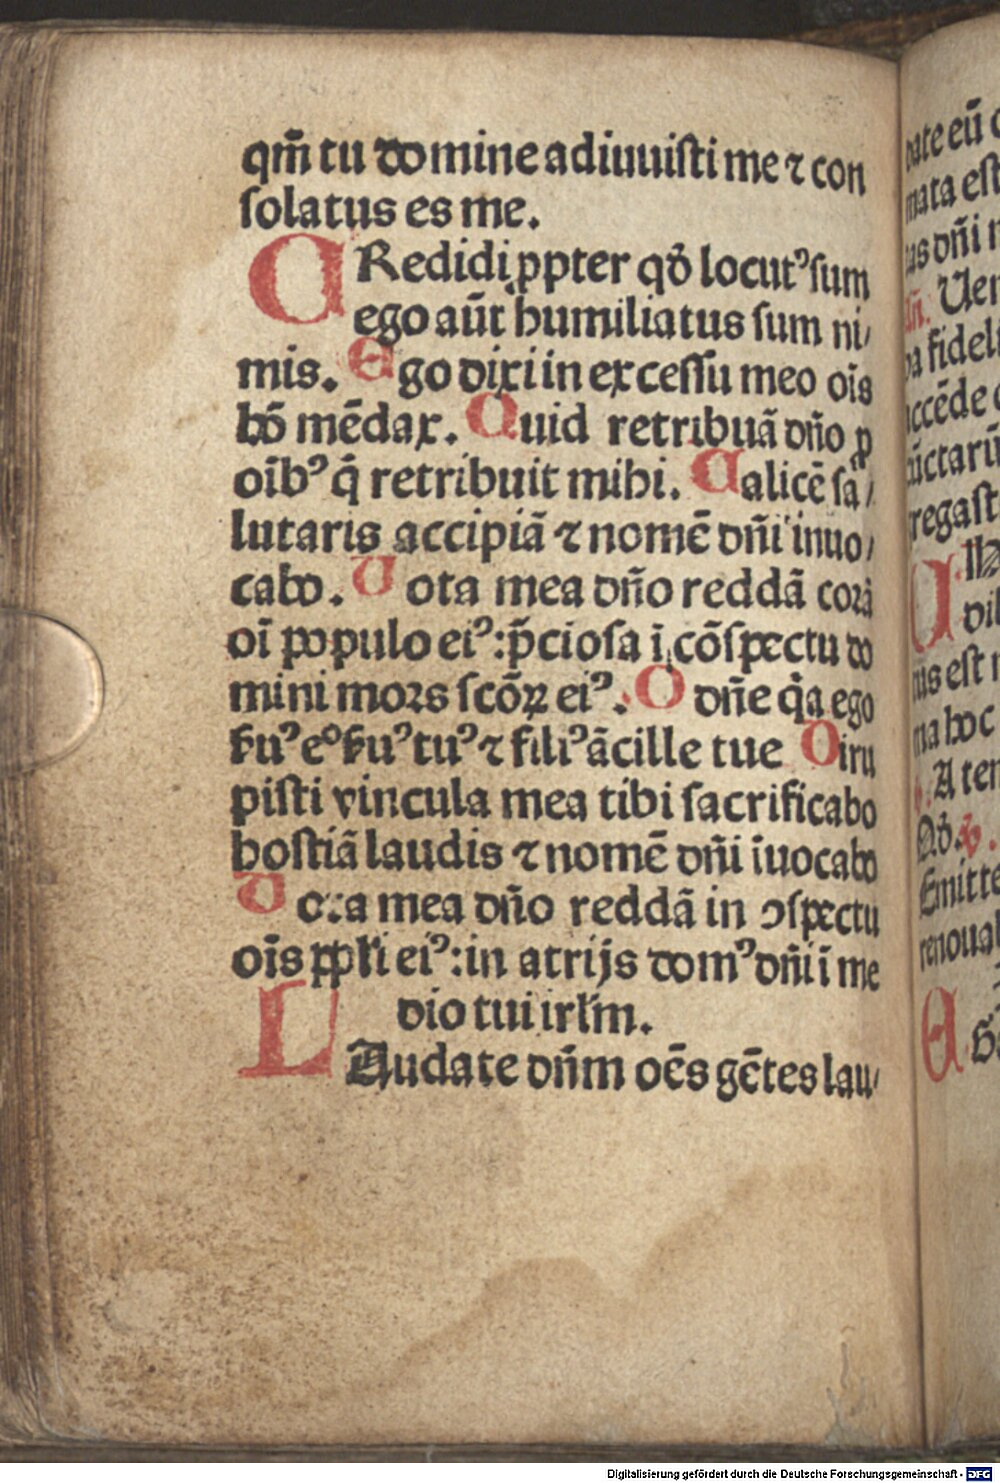 qm̄ tu domine adiuuisti me ⁊ con
solatus es me.
CRedidi ꝓpter qđ locutꝰ sum
ego aūt humiliatus sum ni/
mis. Ego dixi in excessu meo oīs
hō mēdax. Quid retribuā dn̄o ꝓ
oībꝰ q̄ retribuit mihi. Calicē sa/
lutaris accipiā ⁊ nomē dn̄i inuo/
cabo. Vota mea dn̄o reddā corā
oī populo eiꝰ: p̄ciosa ī cōspectu do
mini mors scōꝝ eiꝰ. O dn̄e q̄a ego
ẜuꝰ eͦ ẜuꝰ tuꝰ ⁊ filiꝰ ācille tue Diru
pisti vincula mea tibi sacrificabo
hostiā laudis ⁊ nomē dn̄i īuocabo
Vota mea dn̄o reddā in ꝯspectu
oīs ppłi eiꝰ: in atrijs domꝰ dn̄i ī me
dio tui irłm.
LAudate dn̄m oēs gētes lau/
date eū
mata est
dn̄i
Ver
fideli
accēde
regast
est
hoc
A te
Emitte
renoua
Digitalisierung gefördert durch die Deutsche Forschungsgemeinschaft - DFG